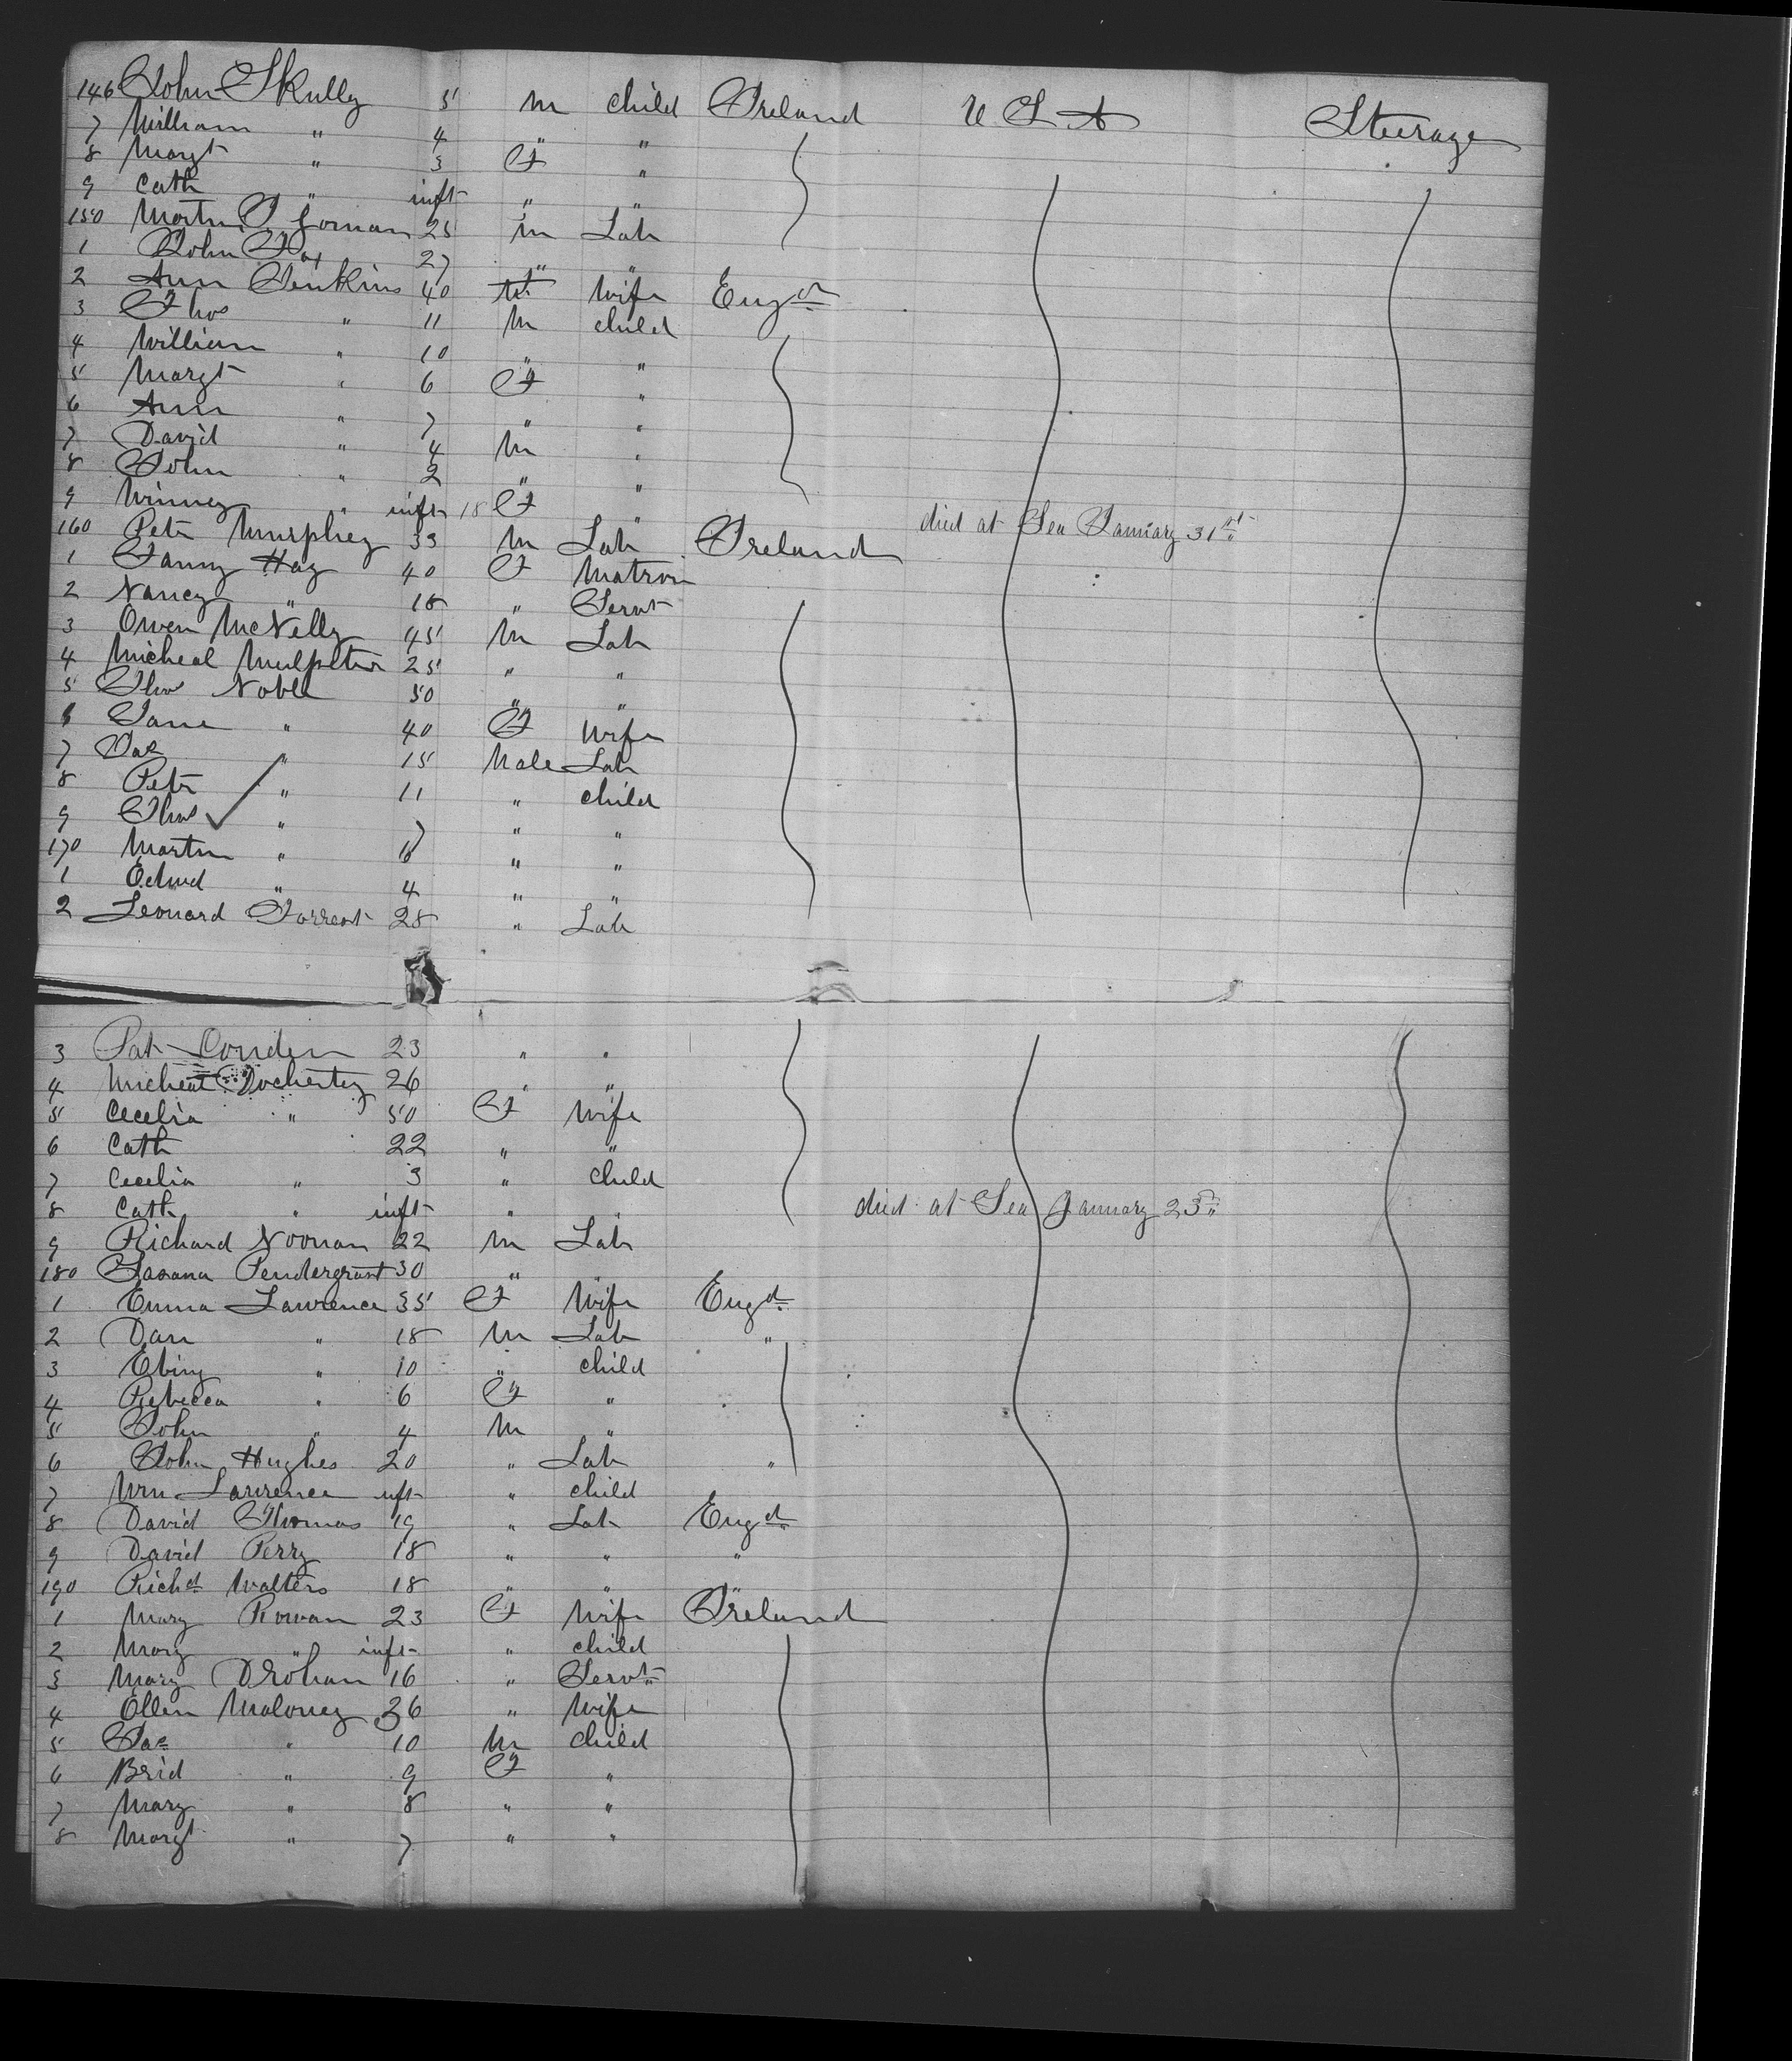 146 John Skully 5 m child Ireland U S A Steerage
7 William " 4 " "
8 Margt " 3 F "
9 Cath " inft " "
150 Martin Gorman 25 m Lab
1 John Fox 27 " "
2 Ann Jenkins 40 F wife Engd
3 Thos " 11 m child
4 William " 10 " "
5 Margt " 6 F "
6 Ann " 7 " "
7 David " 4 m "
8 John " 2 " "
9 Winney " inft 18 F " died at Sea January 31st
160 Petr Murphey 33 m Lab Ireland
1 Fanny Hay 40 F Matron
2 Nancy " 18 " Servt
3 Owen McNelly 45 m Lab
4 Micheal Mulpeter 25 " "
5 Thos Noble 50 " "
6 Jane " 40 F wife
7 Jas " 15 Male Lab
8 Petr " 11 " child
9 Thos " 7 " "
170 Martin " 6 " "
1 Edwd " 4 " "
2 Leonard Forrest 28 " Lab
3 Pat Conden 23 " "
4 Micheal Docherty 26 " "
5 Cecelia " 50 F wife
6 Cath 22 " "
7 Cecelia " 3 " child
8 Cath " inft " " died at Sea January 23rd
9 Richard Noonan 22 m Lab
180 Pendergrast 30 "
1 Emma Lawrence 35 F Wife Engd
2 Dan " 18 m Lab "
3 " 10 " child
4 Rebecca " 6 F "
5 John " 4 m "
6 John Hughes 20 " Lab "
7 Wm Lawrence inft " child
8 David Thomas 19 " Lab Engd
9 David Perry 18 " " "
190 Richd Walters 18 " " "
1 Mary Rowan 23 F Wife Ireland
2 Mary " inft " child
3 Mary Drohan 16 " Servt
4 Ellen Maloney 36 " Wife
5 Jas " 10 m child
6 Brid " 9 F "
7 Mary " 8 " "
8 Margt " 7 " "